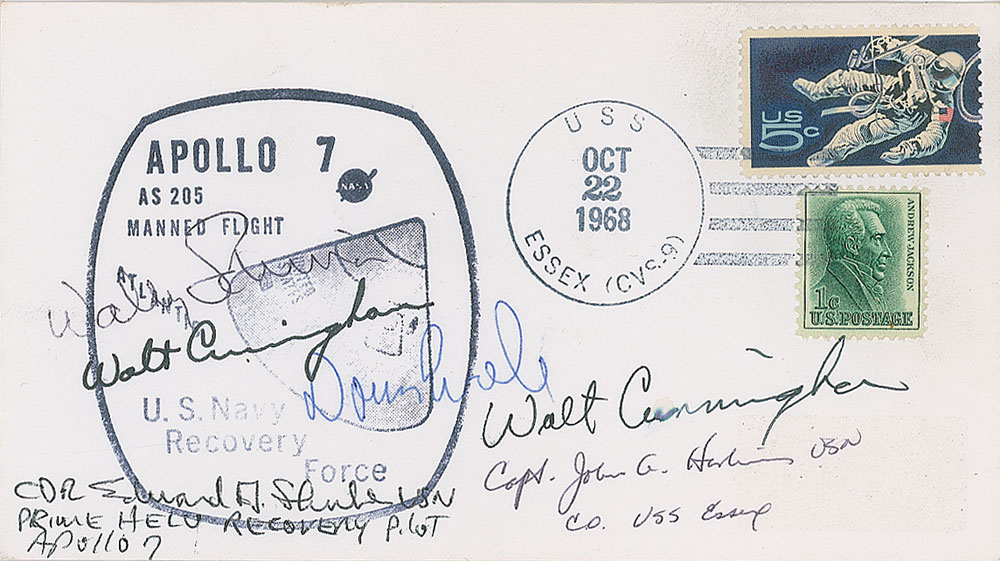 APOLLO 7
NASA
AS 205
MANNED FLIGHT
ATLANTIC
UNITED STATES
Wally Schirra
Walt Cunningham
Donn Eisele
U. S. Navy
Recovery
Force
CDR Edward A. USN
PRIME HELO RECOVERY PILOT
APOLLO 7
USS
OCT
22
1968
ESSEX (CVS-9)
US
5c
ANDREW JACKSON
1c
U.S. POSTAGE
Walt Cunningham
Capt. John A. Harkins USN
CO. USS Essex